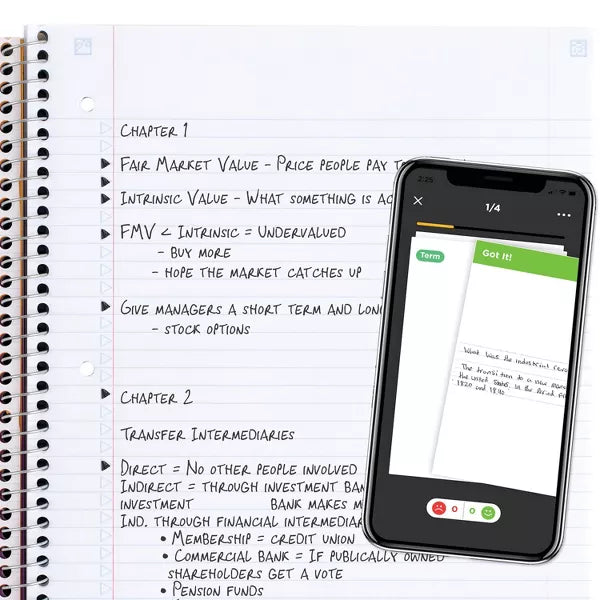 CHAPTER 1
FAIR MARKET VALUE - PRICE PEOPLE PAY
INTRINSIC VALUE - WHAT SOMETHING IS
FMV < INTRINSIC = UNDERVALUED
- BUY MORE
- HOPE THE MARKET CATCHES UP
GIVE MANAGERS A SHORT TERM AND
- STOCK OPTIONS
CHAPTER 2
TRANSFER INTERMEDIARIES
DIRECT = NO OTHER PEOPLE INVOLVED
INDIRECT = THROUGH INVESTMENT
INVESTMENT BANK MAKES
IND. THROUGH FINANCIAL
• MEMBERSHIP = CREDIT UNION
• COMMERCIAL BANK = IF PUBLICALLY OWNED
SHAREHOLDERS GET A VOTE
• PENSION FUNDS
2:25
1/4
Term
Got It!
What was the industrial
The transition to a new
the united states. in the period
1820 and 1840
0 0